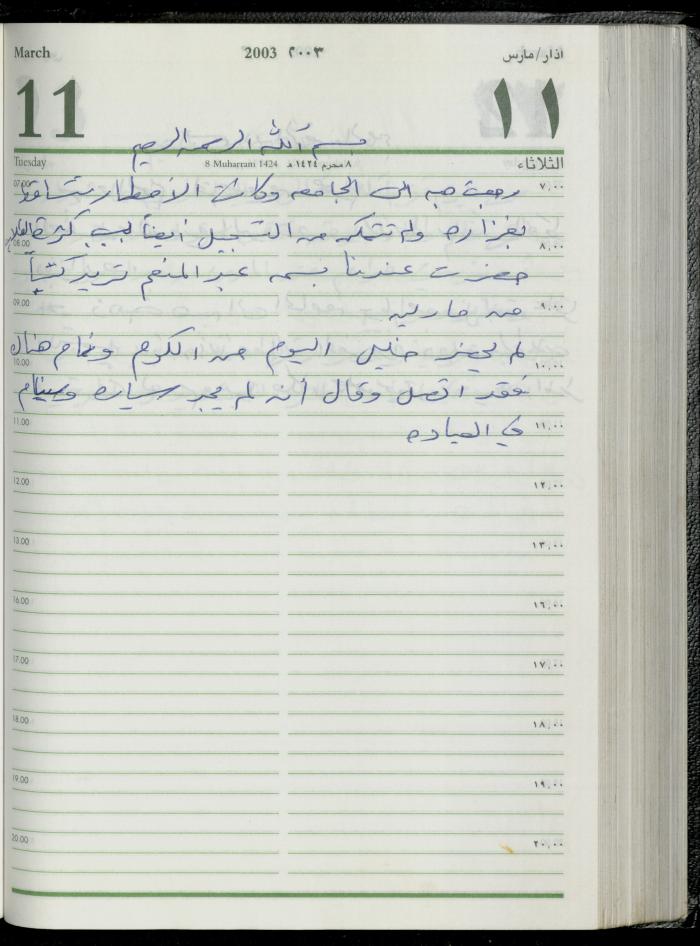 March 2003 ٢٠٠٣ اذار/مارس
11 ١١
بسم الله الرحمن الرحيم
Tuesday 8 Muharram 1424 ٨ محرم ١٤٢٤ هـ الثلاثاء
07.00 رجعت هبه الى الجامعه وكانت الأمطار تتساقط ٧,٠٠
بغزاره ولم تتمكن من التسجيل أيضاً بسبب كثرة الطلاب
08.00 ٨,٠٠
حضرت عندنا بسمه عبد المنعم تريد كتباً
09.00 من مارلين ٩,٠٠
لم يحضر خليل اليوم من الكوم ونام هناك
10.00 ١٠,٠٠
فقد اتصل وقال أنه لم يجد سياره وسينام
11.00 في العياده ١١,٠٠
12.00 ١٢,٠٠
13.00 ١٣,٠٠
16.00 ١٦,٠٠
17.00 ١٧,٠٠
18.00 ١٨,٠٠
19.00 ١٩,٠٠
20.00 ٢٠,٠٠